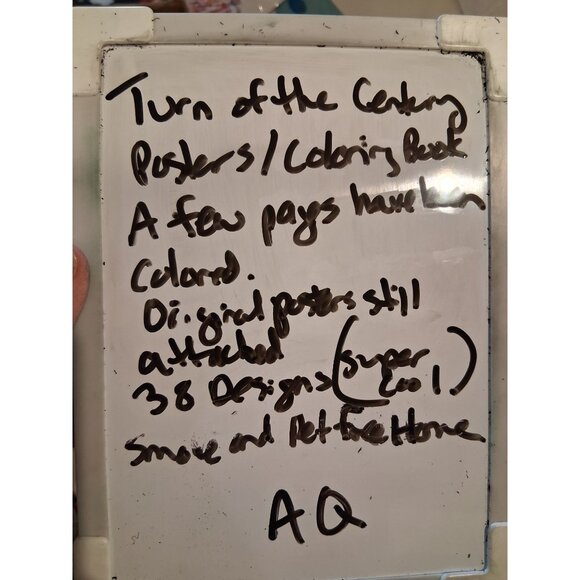 Turn of the Century
Posters/Coloring Book
A few pages have been
Colored.
Original posters still
attached
38 Designs (super cool)
Smoke and Pet Free Home
AQ